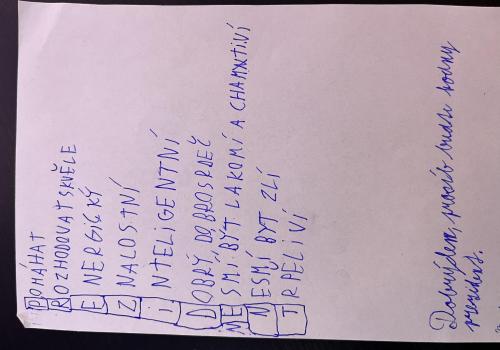 POMÁHAT
ROZHODOVAT SKVĚLE
ENERGICKÝ
ZNALOSTNÍ
INTELIGENTNÍ
DOBRÝ, DOBROSRDEČ
NESMÍ BÝT LAKOMÍ A CHAMNTIVÍ
NESMÍ BÝT ZLÍ
TRPELIVÍ
Dobrý den, prosím